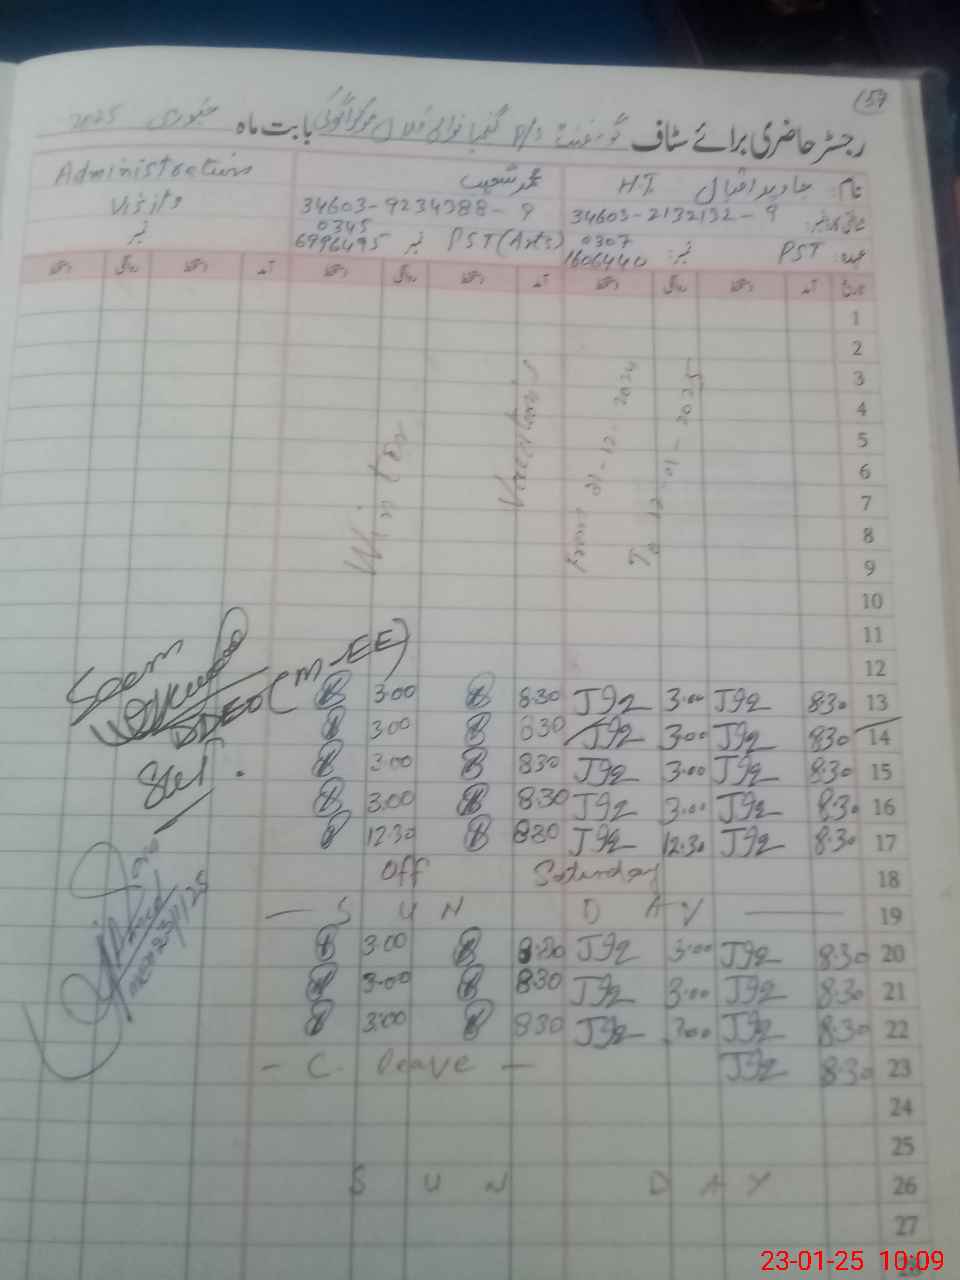 157
رجسٹر حاضری برائے سٹاف گورنمنٹ P/S بابت ماہ جنوری 2025
نام: جاوید اقبال H.T محمد شعیب Administration
34603-2132132-9 34603-9234388-9 وزٹرز
عہدہ: PST نمبر: 0307 1606440 PST (Arts) نمبر 0345 6996495 نمبر
تاریخ آمد دستخط روانگی دستخط آمد دستخط روانگی دستخط آمد دستخط روانگی دستخط
1
2
3
4
5
6
7
8
9
10
11
12
Winter Vacations From 21-12-2024 To 12-01-2025
13 8:30 J92 3:00 J92 8:30 3:00
14 8:30 J92 3:00 J92 8:30 3:00
15 8:30 J92 3:00 J92 8:30 3:00
16 8:30 J92 3:00 J92 8:30 3:00
17 8:30 J92 12:30 J92 8:30 12:30
18 Off Saturday
19 — SUN DAY —
20 8:30 J92 3:00 J92 8:30 3:00
21 8:30 J92 3:00 J92 8:30 3:00
22 8:30 J92 3:00 J92 8:30 3:00
23 8:30 J92 - C. Leave -
24
25
26 SUN DAY
27
28
Seen
DDEO (M-EE)
23/1/25
23-01-25 10:09